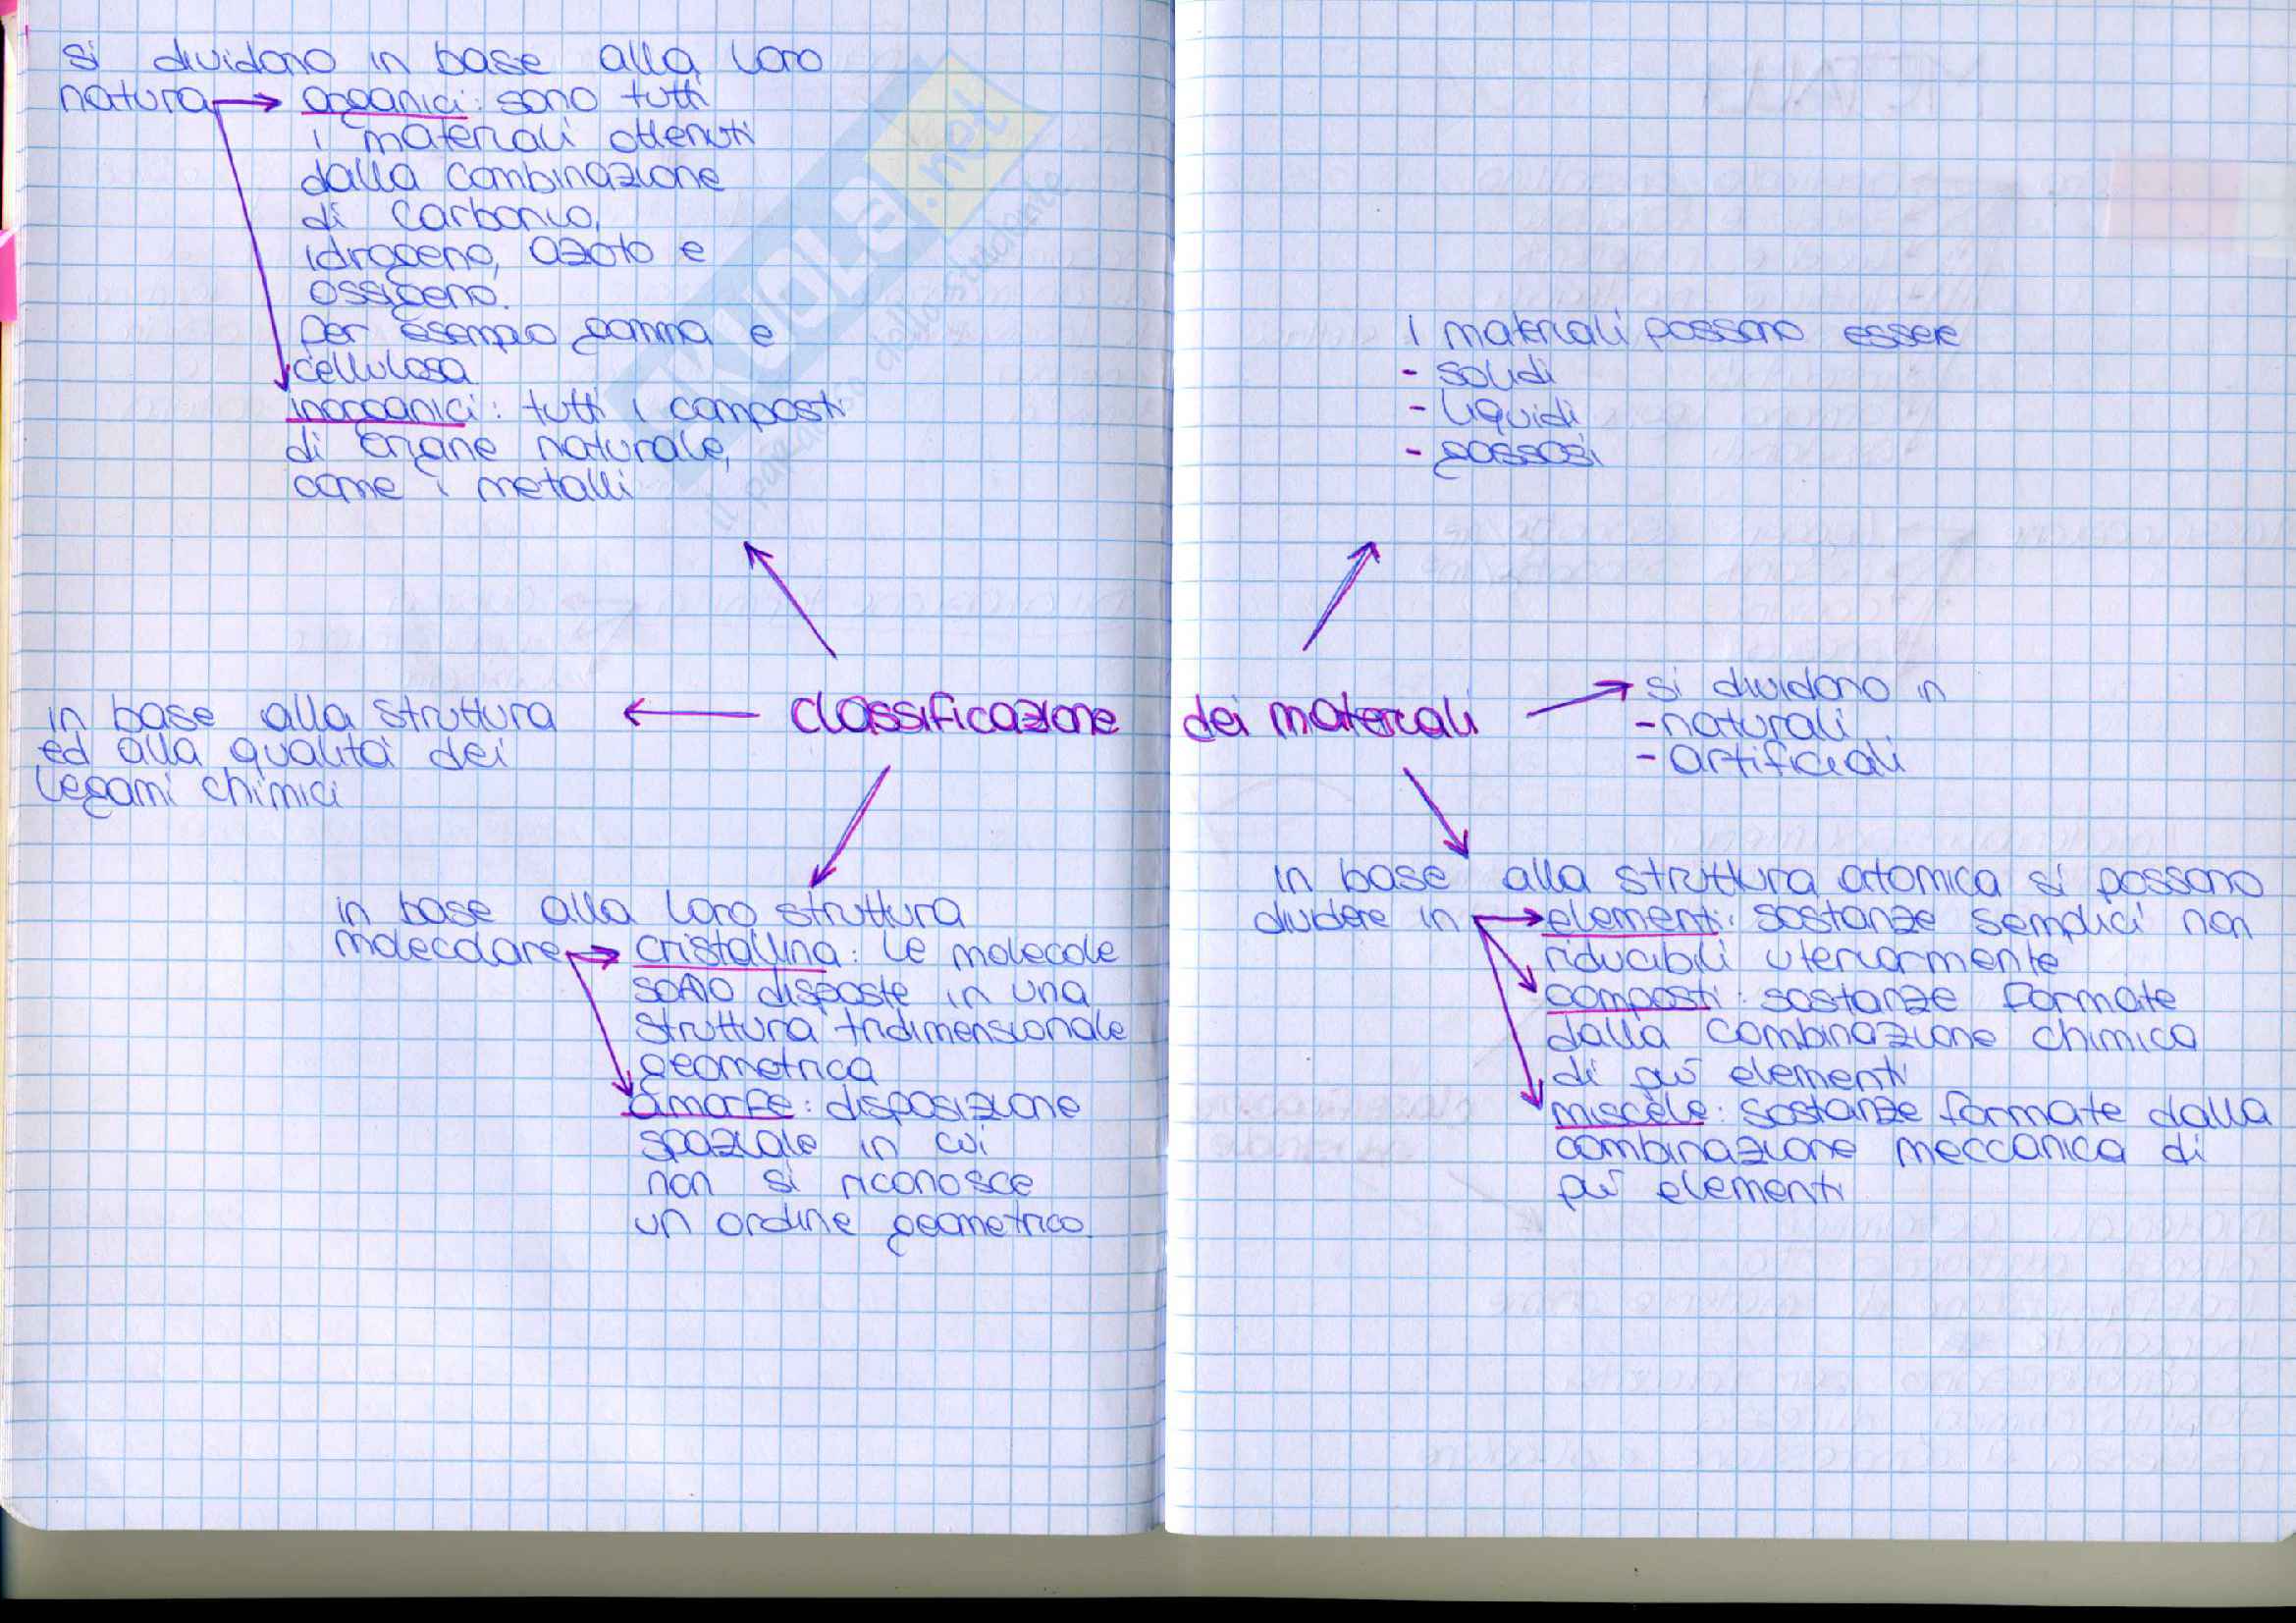 si dividono in base alla loro
natura → organici: sono tutti
i materiali ottenuti
dalla combinazione
di carbonio,
idrogeno, azoto e
ossigeno.
Per esempio gomma e
cellulosa
inorganici: tutti i composti
di origine naturale,
come i metalli
SKUOLA.net
il paradiso dello studente
i materiali possono essere
- solidi
- liquidi
- gassosi
classificazione dei materiali
si dividono in
- naturali
- artificiali
in base alla struttura
ed alla qualità dei
legami chimici
in base alla loro struttura
molecolare → cristallina: le molecole
sono disposte in una
struttura tridimensionale
geometrica
amorfe: disposizione
spaziale in cui
non si riconosce
un ordine geometrico.
in base alla struttura atomica si possono
dividere in → elementi: sostanze semplici non
riducibili uteriormente
composti: sostanze formate
dalla combinazione chimica
di più elementi
miscele: sostanze formate dalla
combinazione meccanica di
più elementi
METALLI